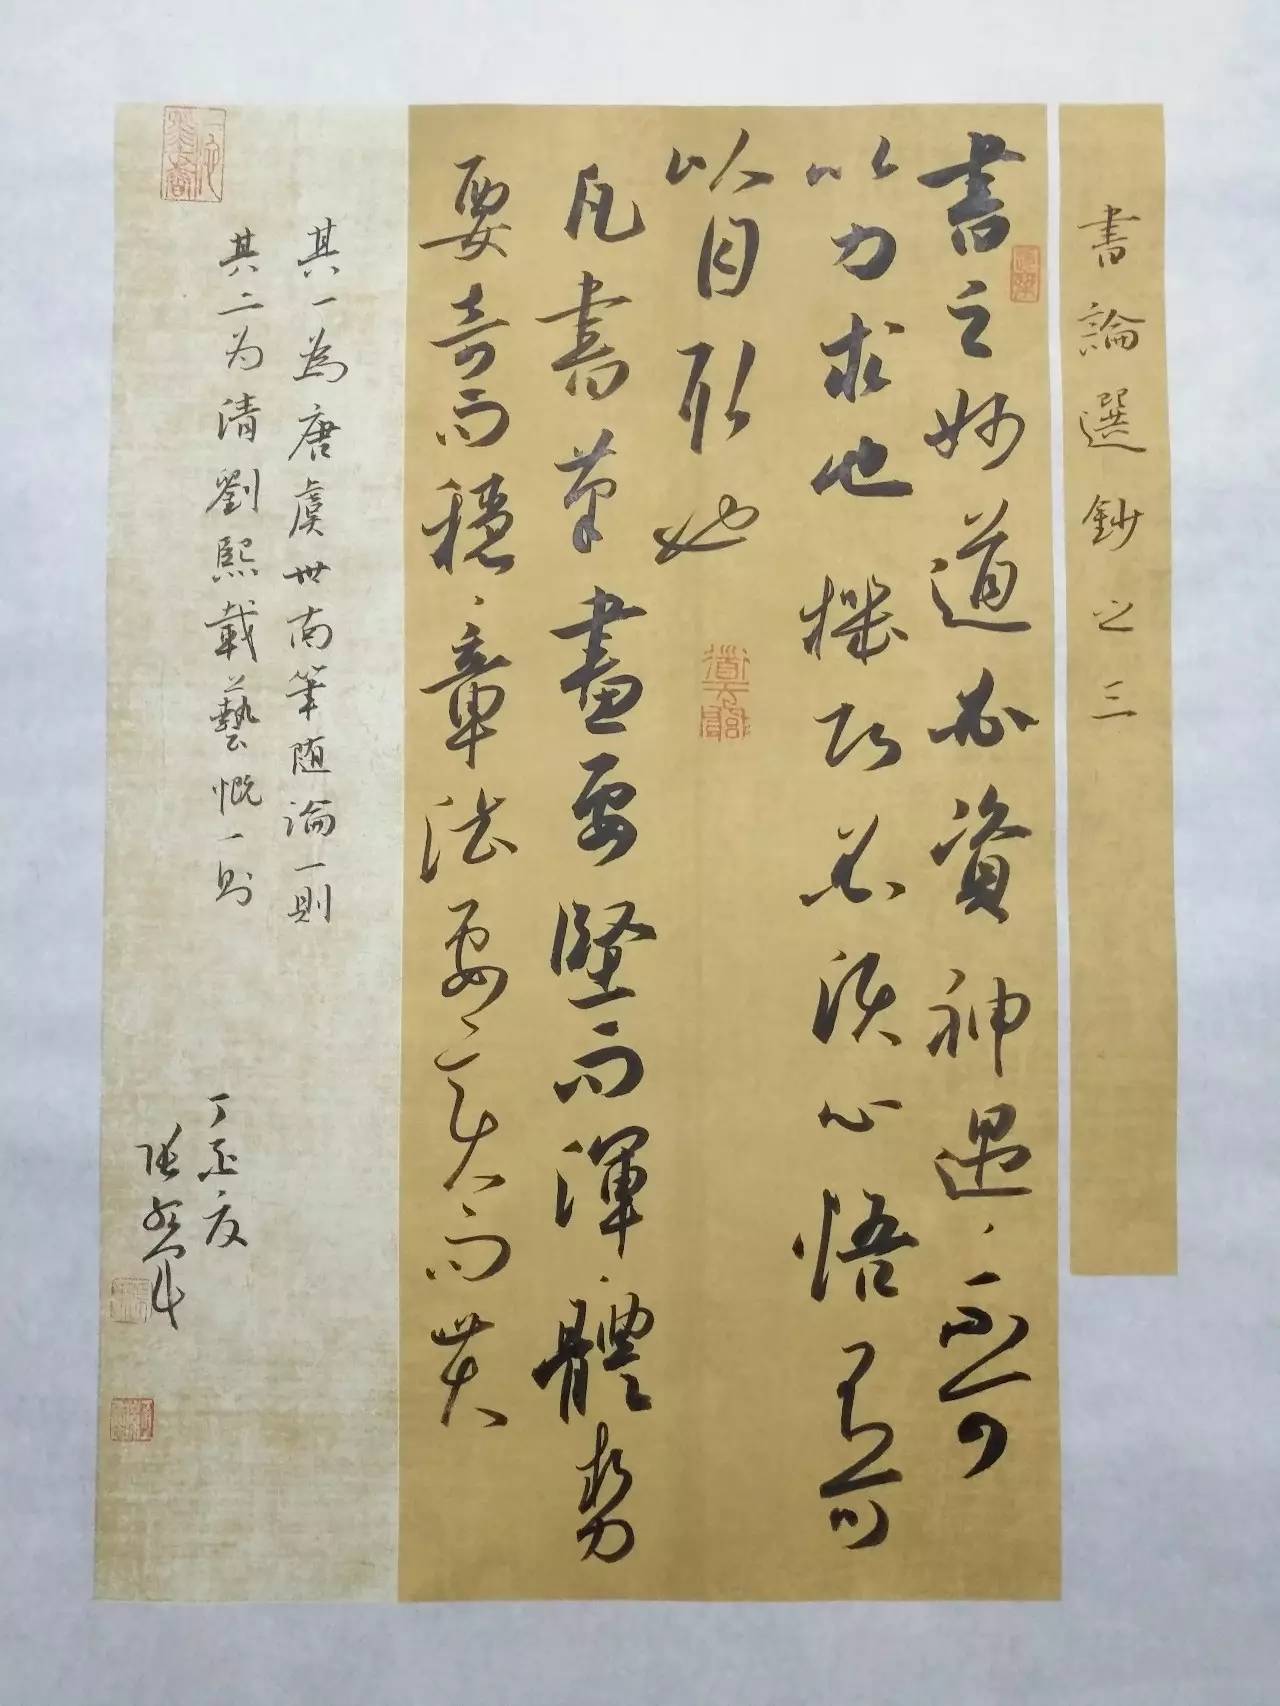 書論選鈔之三
書之妙道必資神遇、不可
以力求也機巧必須心悟不可
以目取也
凡書筆畫要堅而渾、體勢
要奇而穩、章法要變而貫
其一為唐虞世南筆随論一則
其二为清劉熙載藝慨一则
丁夏
張